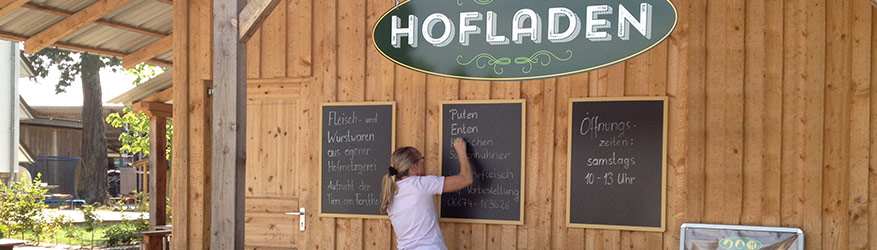 HOFLADEN
Fleisch- und
Wurstwaren
aus eigener
Hofmetzgerei
Aufzucht der
Tiere am Forsthof
Puten
Enten
Vorbestellung
Öffnungs-
zeiten:
samstags
10-13 Uhr